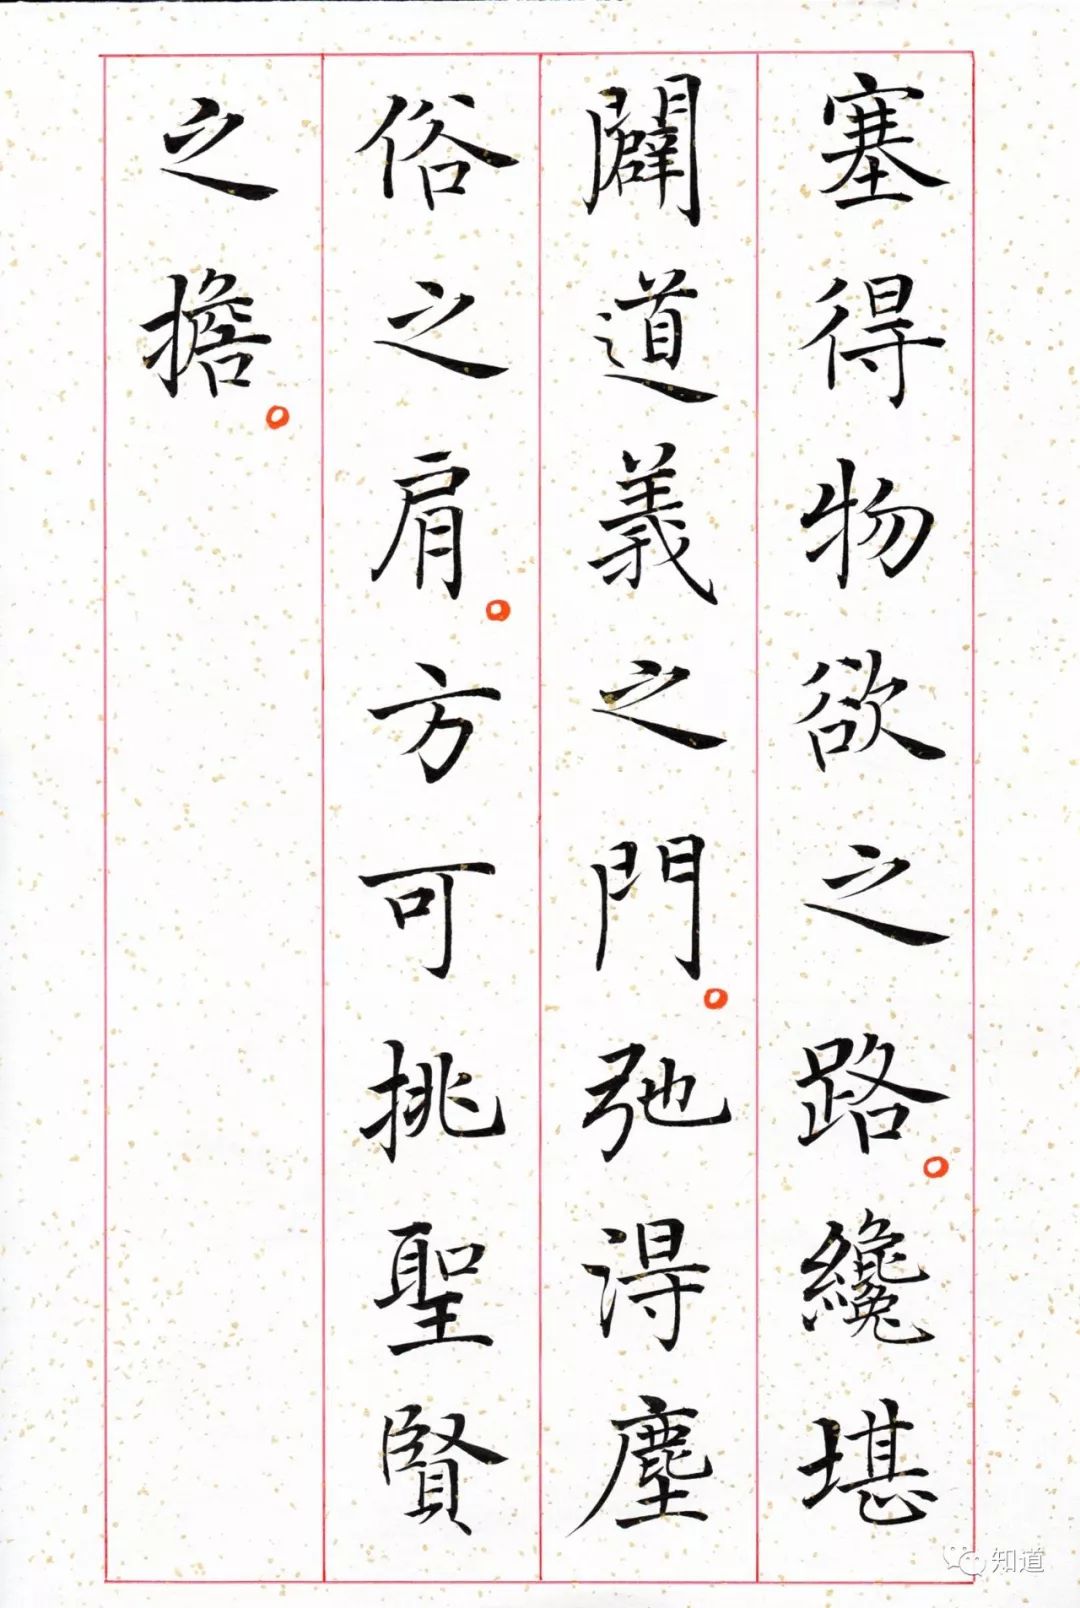 塞得物欲之路。纔堪
闢道義之門。弛得塵
俗之肩。方可挑聖賢
之擔。
知道